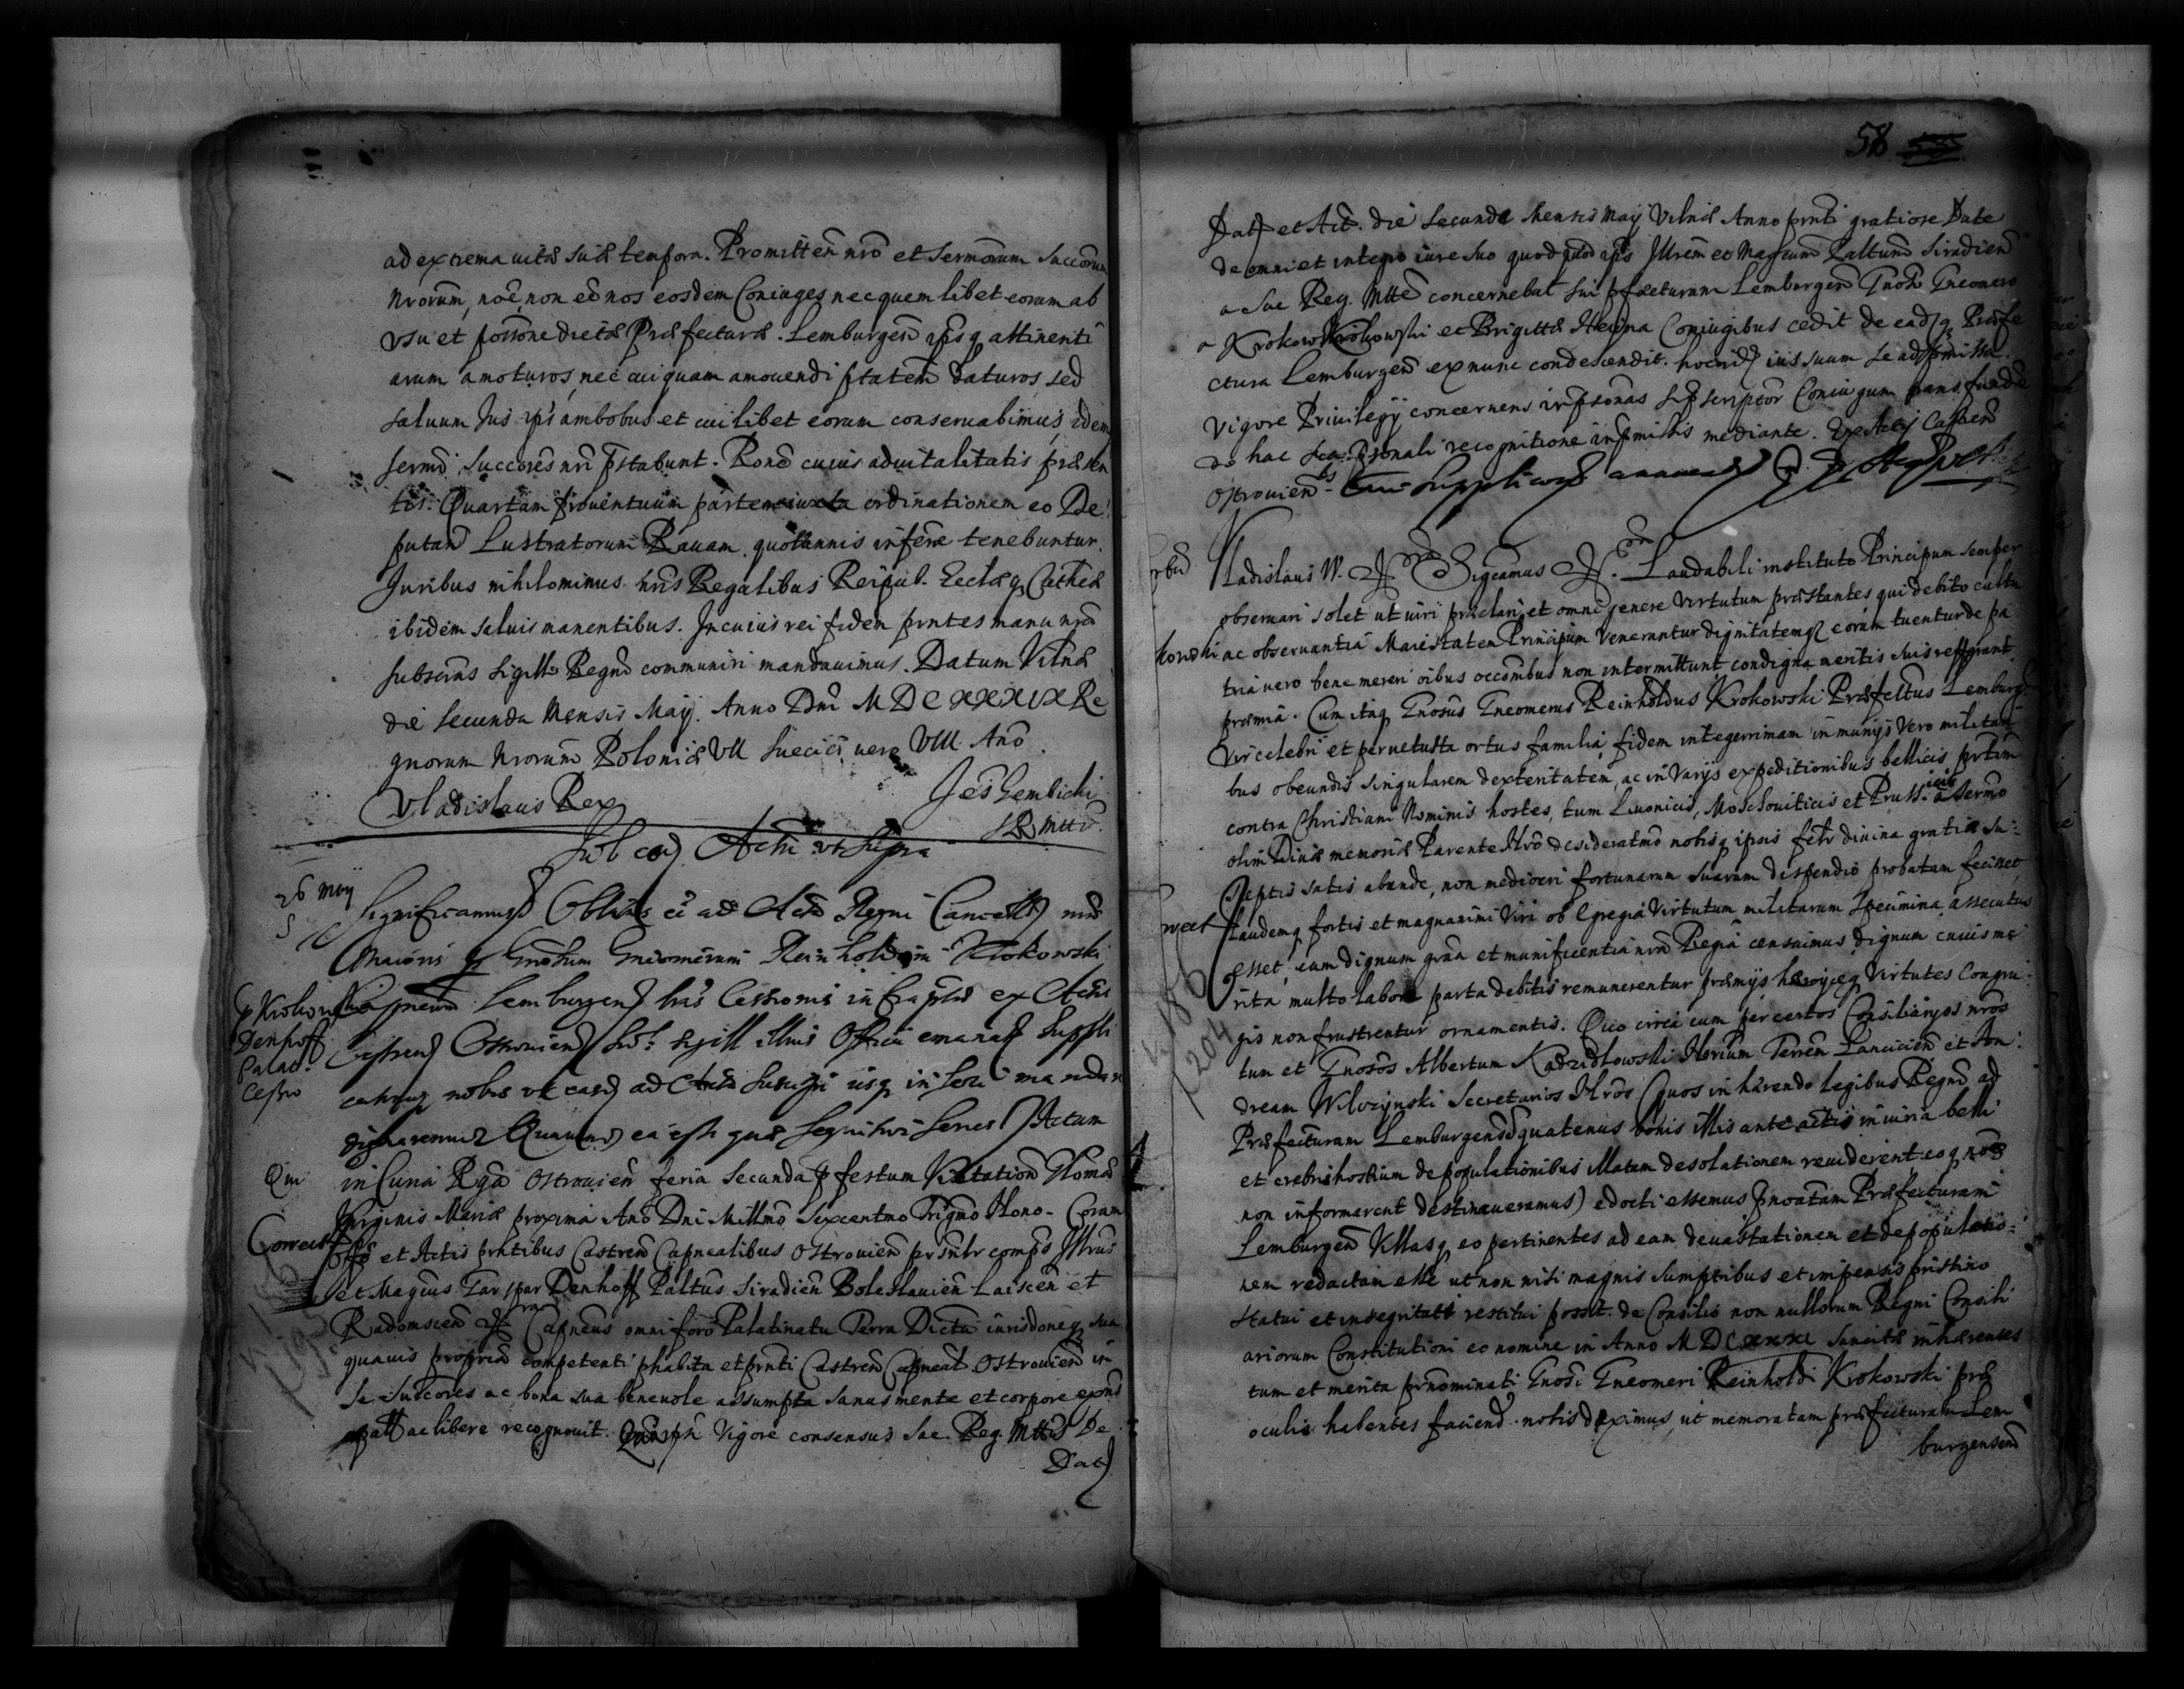 ad extrema uitæ suæ tempora. Promitten̄ nrō et Sermōrum Succōrum
Nrorum, noē, non eē nos eosdem Coniuges nec quem libet eorum ab
vsu et possōne dictæ Præfecturæ. Lemburgeñ ipsq attinenti
arum amoturos, nec cuiquam amouendi ptatem daturos, sed
saluum Jus ip̄s ambobus et cuilibet eorum conseruabimus, idem
sermī Succores nr̄i p̄stabunt. Ronē cuius aduitalitatis præsen
tis: Quartam prouentuum partem iuxta ordinationem eo De
putan̄ Lustratorum Rauam quotannis inferre tenebuntur.
Juribus nihilominus nr̄is Regalibus Reipub. Ecclæq Cathcæ
ibidem saluis manentibus. In cuius rei fidem prntes manu nr̄a
subscrās sigillo Regnī communiri mandauimus. Datum Vilnæ
die secunda Mensis Maij. Anno Dni MDCXXXIX Re
gnorum Nrorum Poloniæ VII Sueciæ vero VIII Anō.
Vladislaus Rex
Jēs Gembicki
S R Mttis.
Sub eod Actu vt supra
26 Maij
Significamus Oblatas eē ad Acta Regni Cancellæ nræ
Maioris p Gnosum Gneomerum Reinholdum Krokowski
Capneum Lemburgens has Cessionis infrascriptas ex Actis
p Krokowski
Denhoff
Palat.
Cessio
Castren Ostrouien sub sigill illius Officii emanat Suppli
catumq nobis vt easd ad Acta suscipi iisq inseri mandare
dignaremur Quarum ea est quæ sequitur series Actum
in Curia Rgā Ostrouien̄ feria Secunda p festum Visitationis Gloriosæ
Virginis Mariæ proxima Anō Dni Millmō Sexcentmo Trigmō Nono. Coram
Correct
Offō et Actis prntibus Castren̄ Capnealibus Ostrouien̄ prsntr comp̄s Illrus
et Magcus Gaspar Denhoff Paltnus Siradien̄ Boleslauien̄ Laiscen̄ et
Radomscen̄ Capneus omni forō Palatinatu Terra Districtu iurisdoneq sua
quauis propria competenti phabita et prnti Castren̄ Capneali Ostrouien̄ in
se Succores ac bona sua beneuole assumpta sanus mente et corpore expns
palā ac libere recognouit. Quia ip̄e Vigore consensus Sac. Reg. Mttis De
Dat
58
Dat et Act. die Secunda Mensis Maij Vilnæ Anno prnti gratiose Date
de omni et integro iure suo quod quod ip̄s Illrem et Magcum Paltnum Siradien̄
a Sac Reg. Mtte concernebat sui pfecturam Lemburgen̄ Gnoso Gneomero
a Krokow Krokowski et Brigittæ Heidna Coniugibus cedit de eadq Præfe
ctura Lemburgen̄ ex nunc condescendit. hocnid ius suum se ad præmissa
Vigore Priuilegij concernens in p̄sonas supscriptor Coniugum transfundē
do hac sca p̄sonali recognitione in p̄missis mediante. Ex Actis Castren̄
Ostrouien̄
Vladislaus IV. Significamus Laudabili instituto Principum semper
obseruari solet ut uiri præclari et omni genere virtutum præstantes qui debito cultu
ac obseruantia Maiestatem Principum venerantur dignitatemq eorum tuentur de pa
tria vero bene mereri oibus occōnibus non intermittunt, condigna meritis suis referant
præmia. Cum itaq Gnosus Gneomerus Reinholdus Krokowski Præfectus Lemburg
Vir celebri et peruetusta ortus familia, fidem integerrimam in munijs vero militari
bus obeundis singularem dexteritatem, ac in varijs expeditionibus bellicis, prtim
contra Christiani Nominis hostes, tum Liuonicis, Moschouiticis et Prussicis a sermo
olim Diuæ memoriæ Parente Nrō desideratmō nobisq ipsis felr diuina gratia su
sceptis satis abunde, non mediocri fortunarum suarum dispendio probatam fecisset,
laudemq fortis et magnanimi Viri ob Egregia virtutum militarium specimina assecutus
esset, eum dignum grā et munificentia nrā Regia censuimus dignum cuius me
rita multo labore parta debitis remunerentur præmijs heroiceq virtutes Congru
gis non frustrentur ornamentis. Quo circa cum per certos Consiliarios nros
tum et Gnosos Albertum Kadzidłowski Notrium Terren̄ Lancicien̄ et An
dream Wilczynski Secretarios Nros (quos inhærendo legibus Regnī ad
Præfecturam Lemburgensē quatenus bonis illis ante actis iniuria belli
et crebris hostium depopulationibus illatam desolationem reuiderent eoq nos
non informarent destinaueramus) edocti essemus prnoatam Præfecturam
Lemburgen̄ Villasq eo pertinentes ad eam deuastationem et depopulatio
nem redactam esse ut non nisi magnis sumptibus et impensis pristino
statui et integritati restitui possit. de Consilio non nullorum Regni Consili
ariorum Constitutioni eo nomine in Anno MDCXXXI sancitæ inhærentes
tum et merita prnominati Gnosi Gneomeri Reinholdi Krokowski præ
oculis habentes faciend. nobis duximus, ut memoratam præfecturam Lem
burgensem